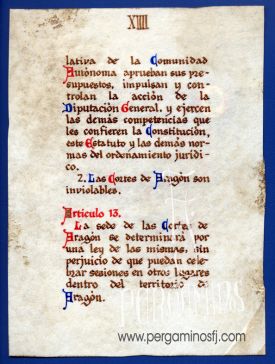 XIIII
lativa de la Comunidad
Autónoma aprueban sus pre-
supuestos, impulsan y con-
trolan la acción de la
Diputación General, y ejercen
las demás competencias que
les confieren la Constitución,
este Estatuto y las demás nor-
mas del ordenamiento jurídi-
co.
2. Las Cortes de Aragón son
inviolables.
Artículo 13.
La sede de las Cortes de
Aragón se determinará por
una ley de las mismas, sin
perjuicio de que puedan cele-
brar sesiones en otros lugares
dentro del territorio de
Aragón.
www.pergaminosfj.com